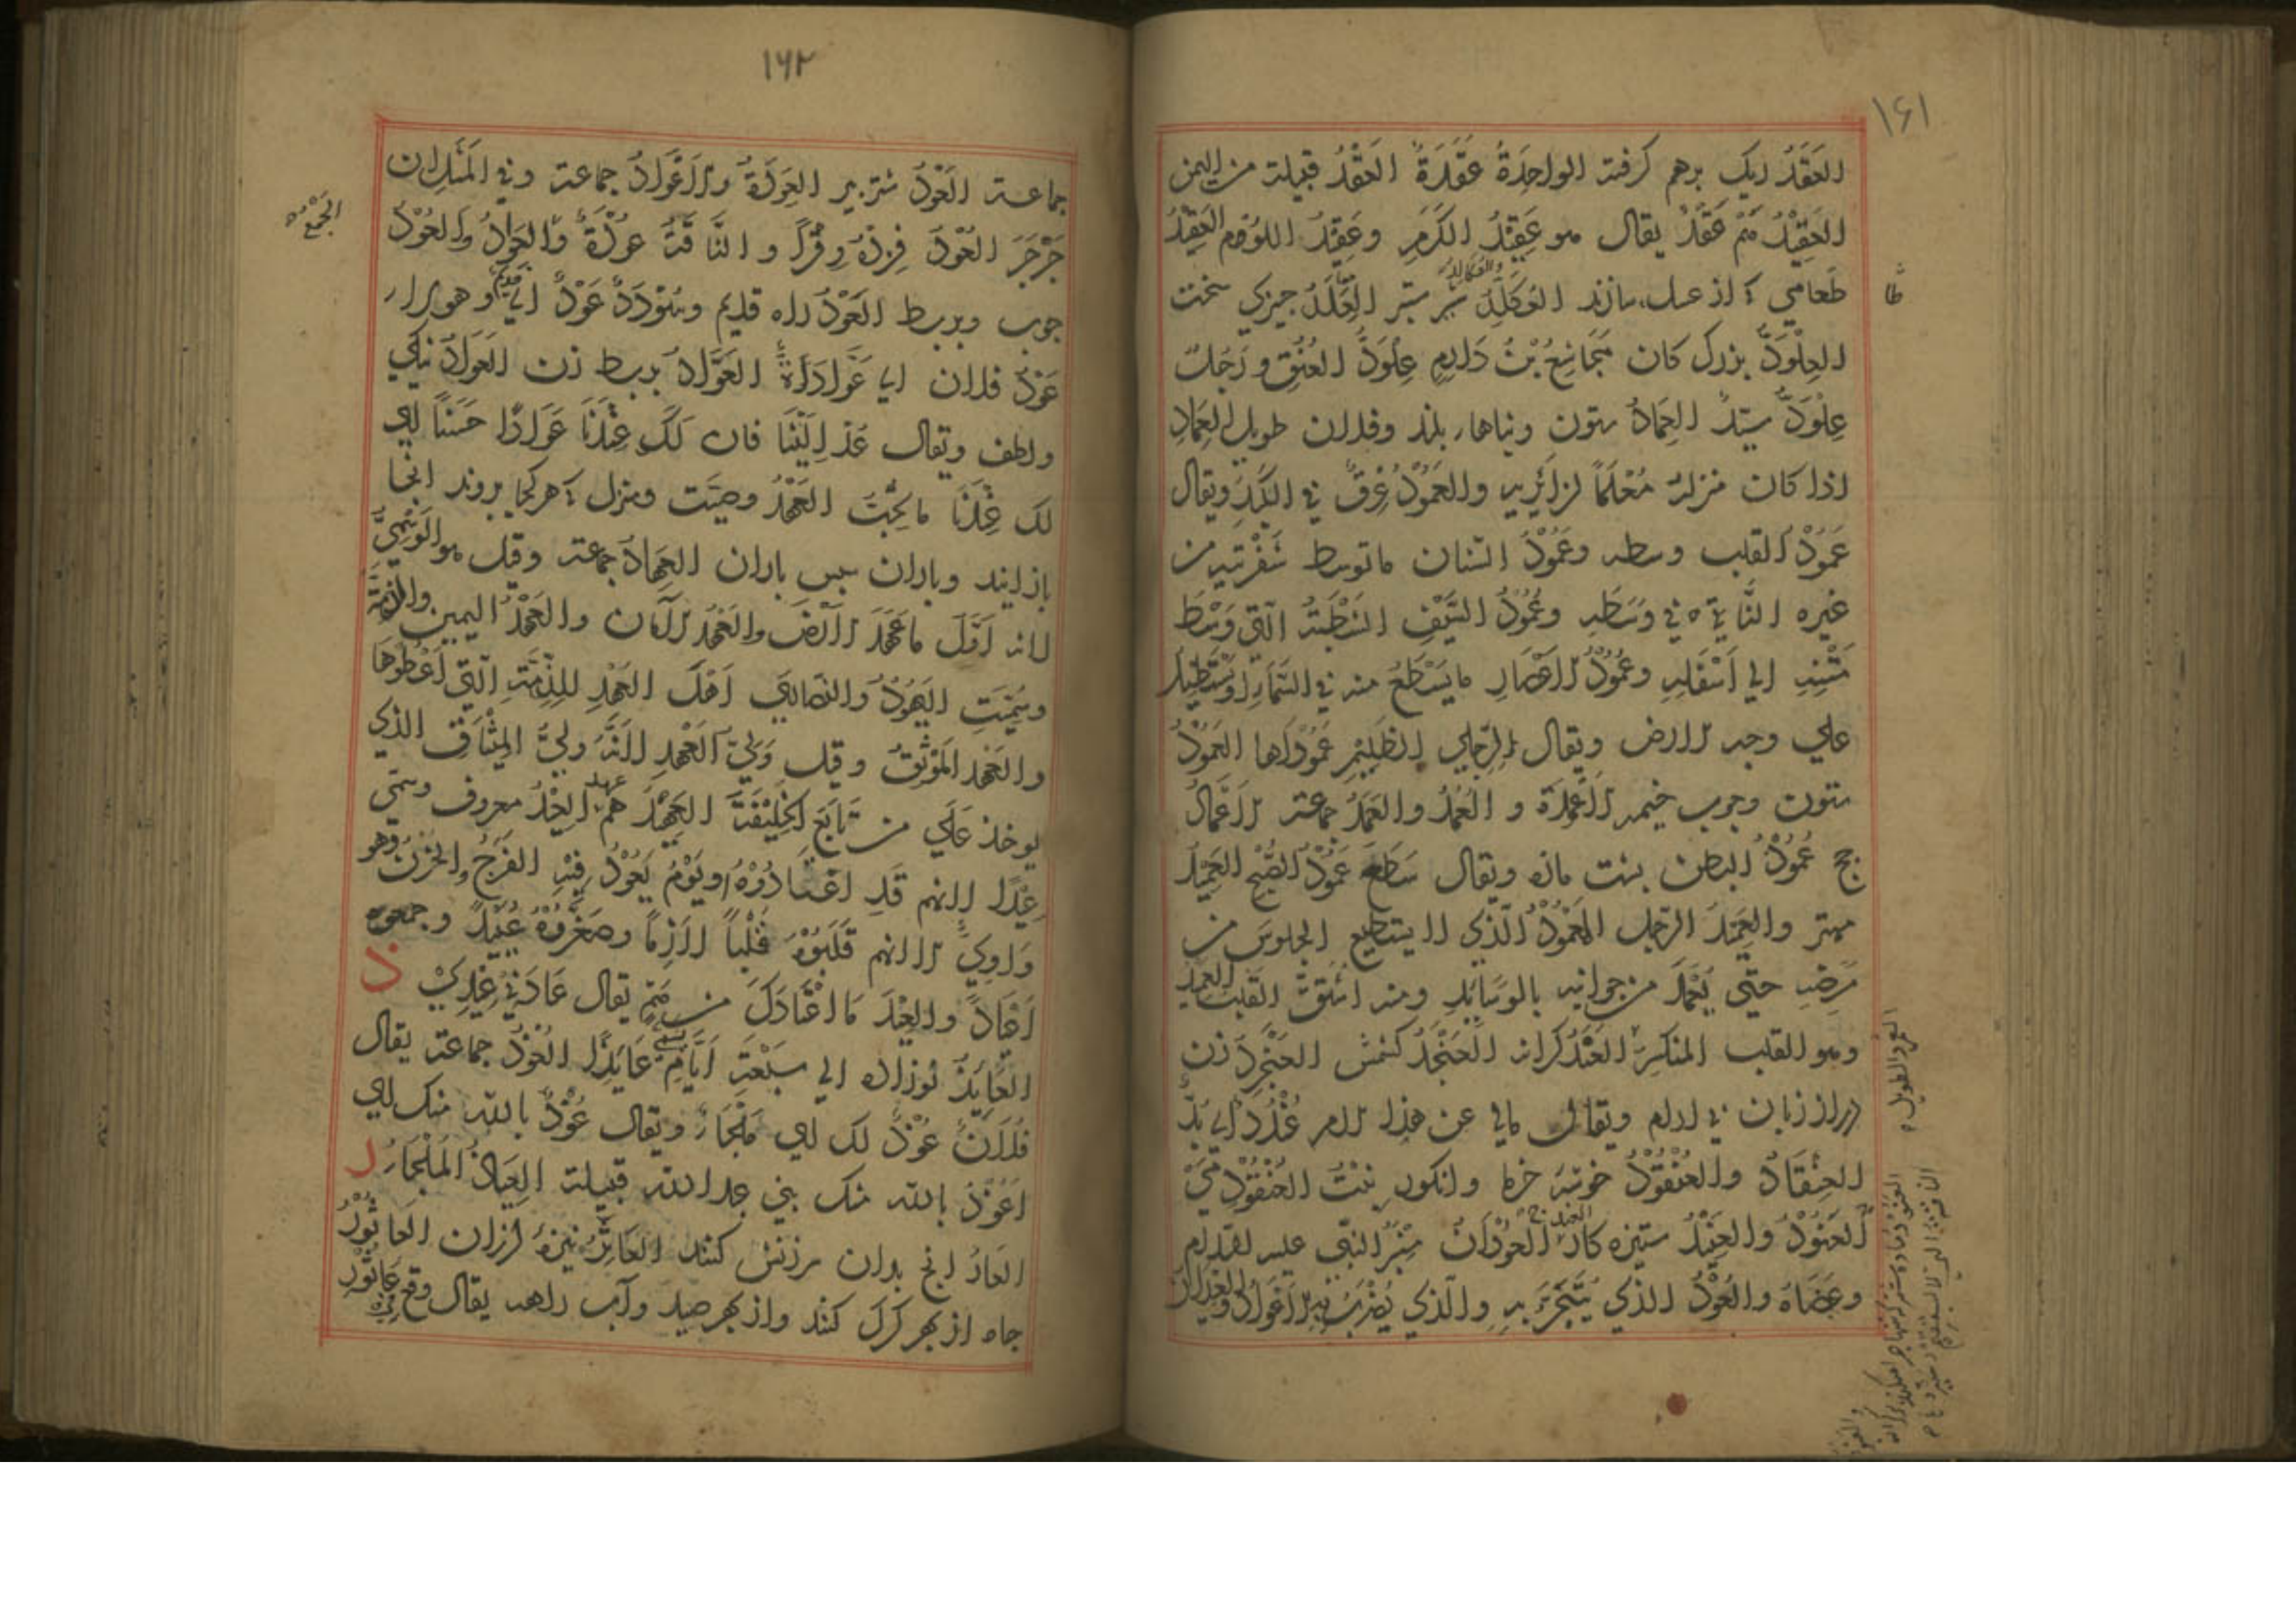 ۱۶۱
العَقَدُ ریک برهم کرفته الواحِدَةُ عَقَدَةٌ العَقْدُ قبیلة من الیمن
العَقِیْدُ هم عَقْدْ یقال هو عَقِیْدُ الکَرَمِ وعَقِیْدُ اللؤم العَقِیْدُ
طَعامی که از عسل سازند العُکَلِدُ شیر ستبر العَلَّدُ چیزی سخت
العِلْوَدُّ بزرک کان مجاشِعُ بْنُ دَارِمٍ عِلْوَدَّ العُنُقِ و رَجُلٌ
عِلْوَدٌّ سیّدٌ العِمَادُ ستون وبناهاء بلند وفلان طویل العِمَادِ
اذا کان منزله مُعْلَمًا لزائریه والعَمُوْدُ عِرْقٌ فی الکبد ویقال
عَمُوْدُ القلب وسطه وعَمُوْدُ السّنان ماتوسط شَفْرَتیه من
غیره النّاتی فی وَسَطِهِ وعَمُوْدُ السَّیْفِ الشَّطْبَةُ الّتی وَسْطَ
مَتْنِهِ الی اَسْفَلِهِ وعَمُوْدُ الاعْصارِ مایَسْطَعُ منه فی السّماء اویَسْتَطِیْلُ
علی وجه الارض ویقال لِرِجْلی الظَلِیْمِ عَمُوْدَاها العَمُوْدُ
ستون وچوب خیمه الاَعْمِدَة و العُمُدُ والعَمَدُ جماعة الاَعْمَالُ
جج عَمُوْدُ البطن پشت مازه ویقال سَطَعَ عَمُوْدُ الصُّبْح العَمِیْدُ
مهتر والعَمِیْدُ الرّجل المَعْمُوْدُ الّذی لا یستطیع الجلوسَ من
مَرَضِهِ حتّی یُعْمَدَ من جوانبه بالوَسَائدِ ومنه اشتقَّ القَلبُ العمید
وهو القلب المنکسِرُ العَنْدُ کرانه العُنْجُدُ کشمش العَنْجَرِدُ زن
دراز زبان بی ادب ویقال مالی عن هذا الامر عُنْدُدٌ ای بُدٌّ
العِنْقَادُ والعُنْقُوْدُ خوشه خرما وانکور بِنْتُ العُنْقُوْدِ مَیْ
العَنُوْدُ والعَنِیْدُ ستیزه کار العُوْدَانِ مِنْبَرُ النّبی علیه السّلام
وعَصَاهُ والعُوْدُ الذی یُتَبَخَّرُ بهِ والّذی یُضْرَبُ بهِ الاَعْوَادُ والعِیْدَانُ
۱۶۲
جماعة العَوْدُ شتر پیر العِوَدَةُ والاَعْوَادُ جماعة وفی المَثَل ان
جَرْجَرَ العَوْدُ فَزِدْهُ وِقْرًا و النّاقَةُ عَوْدَةٌ والعِوَادُ والعُوْدُ
چوب وبربط العَوْدُ راه قدیم وسُوْدَدٌ عَوْدٌ ای قدیم وهولاء
عَوْدُ فلان ای عُوَّادُهُ العَوَّادُ بربط زن العَوَادُ نیکی
ولطف ویقال عُدْ اِلَیْنَا فان لَکَ عِنْدَنَا عَوَادًا حَسَنًا ای
لک عِنْدَنَا ماتُحِبُّ العَهْدُ وصیّت ومنزل که هر کجا بروند انجا
باز ایند وباران سپس باران العِهَادُ جماعة وقیل هو الوَسْمِیُّ
لانه اَوَّلَ ماعَهِدَ الاَرْضَ والعَهْدُ الامان والعَهْدُ الیمین والذِمَّة
وسُمِّیَتِ الیَهُوْدُ والنّصاری اَهْلَ العَهْدِ للذِّمَّةِ الّتی اُعْطُوْهَا
والعَهْد المَوْثِقُ وقیل وَلیُّ العَهْدِ لانَّهُ وَلیُّ المِیْثَاقِ الذی
یوخذ عَلَی من تابَعَ الخَلِیْفَةَ العَهِیْدُ هم عهد العِیْدُ معروف وسمّی
عِیْدًا لانهم قَدِ اعْتَادُوْهُ اویَوْمٌ یَعُوْدُ فِیْهِ الفَرَحُ والحُزْنُ وهو
وَاوِیٌّ الا انهم قَلَبُوْهُ قَلْبًا لازِمًا وصَغَّرُوْهُ عُیَیْدٌ وجمعوه
اَعْیَادٌ والعِیْدُ مَااعْتَادَکَ من هَمٍّ یقال عَادَنی عِیْدِیْ ذ
العَایِذُ نوزاده الی سَبْعَةِ اَیَّامٍ عَایِذًا العُوْذُ جماعة یقال
فُلَانٌ عَوْذٌ لک ای مَلْجَاءٌ ویقال عَوْذٌ بالله منک ای
اَعُوْذُ بالله منک بنی عیذ الله قبیلة العِیَاذُ المَلْجَاءُ ر
العَارُ انچ بدان سرزنش کنند العَاتِرُ نیزهٔ لرزان العَاثُوْرُ
چاه از بهر کرک کنند واز بهر صید وآب راهه یقال وقع فی عَاثُوْرِ
الجمع
طا